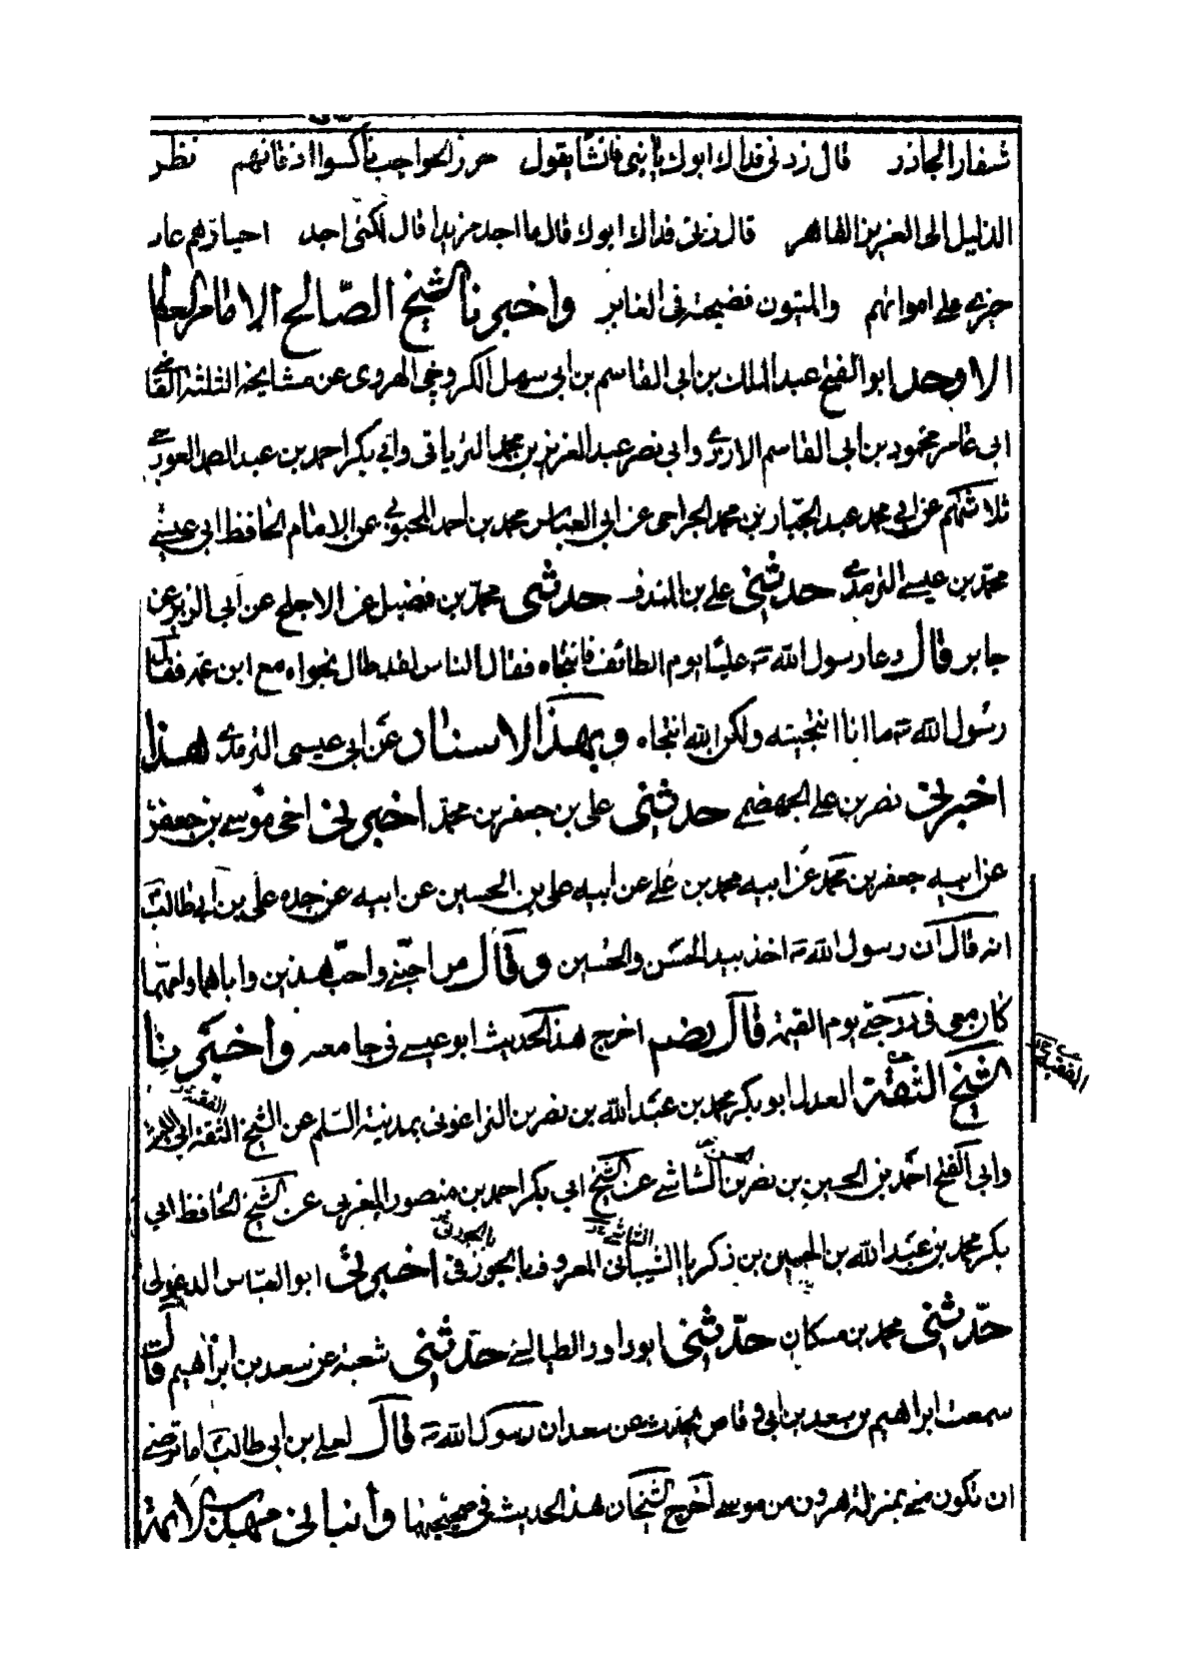 شفار الجاذر قال زدنی فداك ابوك یا بنی فانشأ یقول خزر الحواجب ناكسوا اذقانهم نظر
الذلیل الی العزیز القاهر قال زدنی فداك ابوك قال ما اجد مزیدا قال لكنی اجد احیاؤهم عار
خزی علی امواتهم والمیتون فضیحة فی الغابر واخبرنا الشیخ الصّالح الامام العالم
الاوحد ابوالفتح عبدالملك بن ابی القاسم بن ابی سهل الكروخی الهروی عن مشایخه الثلثة القاضی
ابی عامر محمود بن ابی القاسم الازدی وابی نصر عبدالعزیز بن محمد التریاقی وابی بكر احمد بن عبدالصمد الغورجی
ثلاثتهم عن ابی محمد عبدالجبّار بن محمد الجراحی عن ابی العباس محمد بن احمد المحبوبی عن الامام الحافظ ابی عیسی
محمّد بن عیسی الترمذی حدثنی علی بن المنذر حدثنی محمّد بن فضیل عن الاجلح عن ابی الزبیر عن
جابر قال دعا رسول الله ص علیّا یوم الطائف فانتجاه فقال الناس لقد طال نجواه مع ابن عمه فقال
رسول الله ص ما انا انتجیته ولكن الله انتجاه وبهذا الاسناد عن ابی عیسی الترمذی هذا
اخبرنی نصر بن علی الجهضمی حدثنی علی بن جعفر بن محمّد اخبرنی اخی موسی بن جعفر
عن ابیه جعفر بن محمد عن ابیه محمد بن علی عن ابیه علی بن الحسین عن ابیه عن جده علی بن ابی طالب
انه قال ان رسول الله ص اخذ بید الحسن والحسین وقال من احبّنی واحبّ هذین واباهما وامّهما
كان معی فی درجتی یوم القیمة قال رضه اخرج هذا الحدیث ابوعیسی فی جامعه واخبرنا
الشیخ الثقة العدل ابوبكر محمد بن عبدالله بن نصر بن الزاغونی بمدینة السّلم عن الشیخ الثقة ابی اللیث
وابی الفتح احمد بن الحسین بن نصر بن الشاشی عن الشیخ ابی بكر احمد بن منصور المغربی عن الشیخ الحافظ ابی
بكر محمد بن عبدالله بن الحسین بن زكریا الشیبانی المعروف بالجوزقی اخبرنی ابوالعبّاس الدغولی
حدّثنی محمد بن مسكان حدّثنی ابوداود الطیالسی حدّثنی شعبة عن سعد بن ابراهیم قال
سمعت ابراهیم بن سعد بن ابی وقاص یحدث عن سعد ان رسول الله ص قال لعلی بن ابی طالب اما ترضی
ان تكون منی بمنزلة هرون من موسی اخرج الشیخان هذا الحدیث فی صحیحیهما وانبانی مهذب الائمة